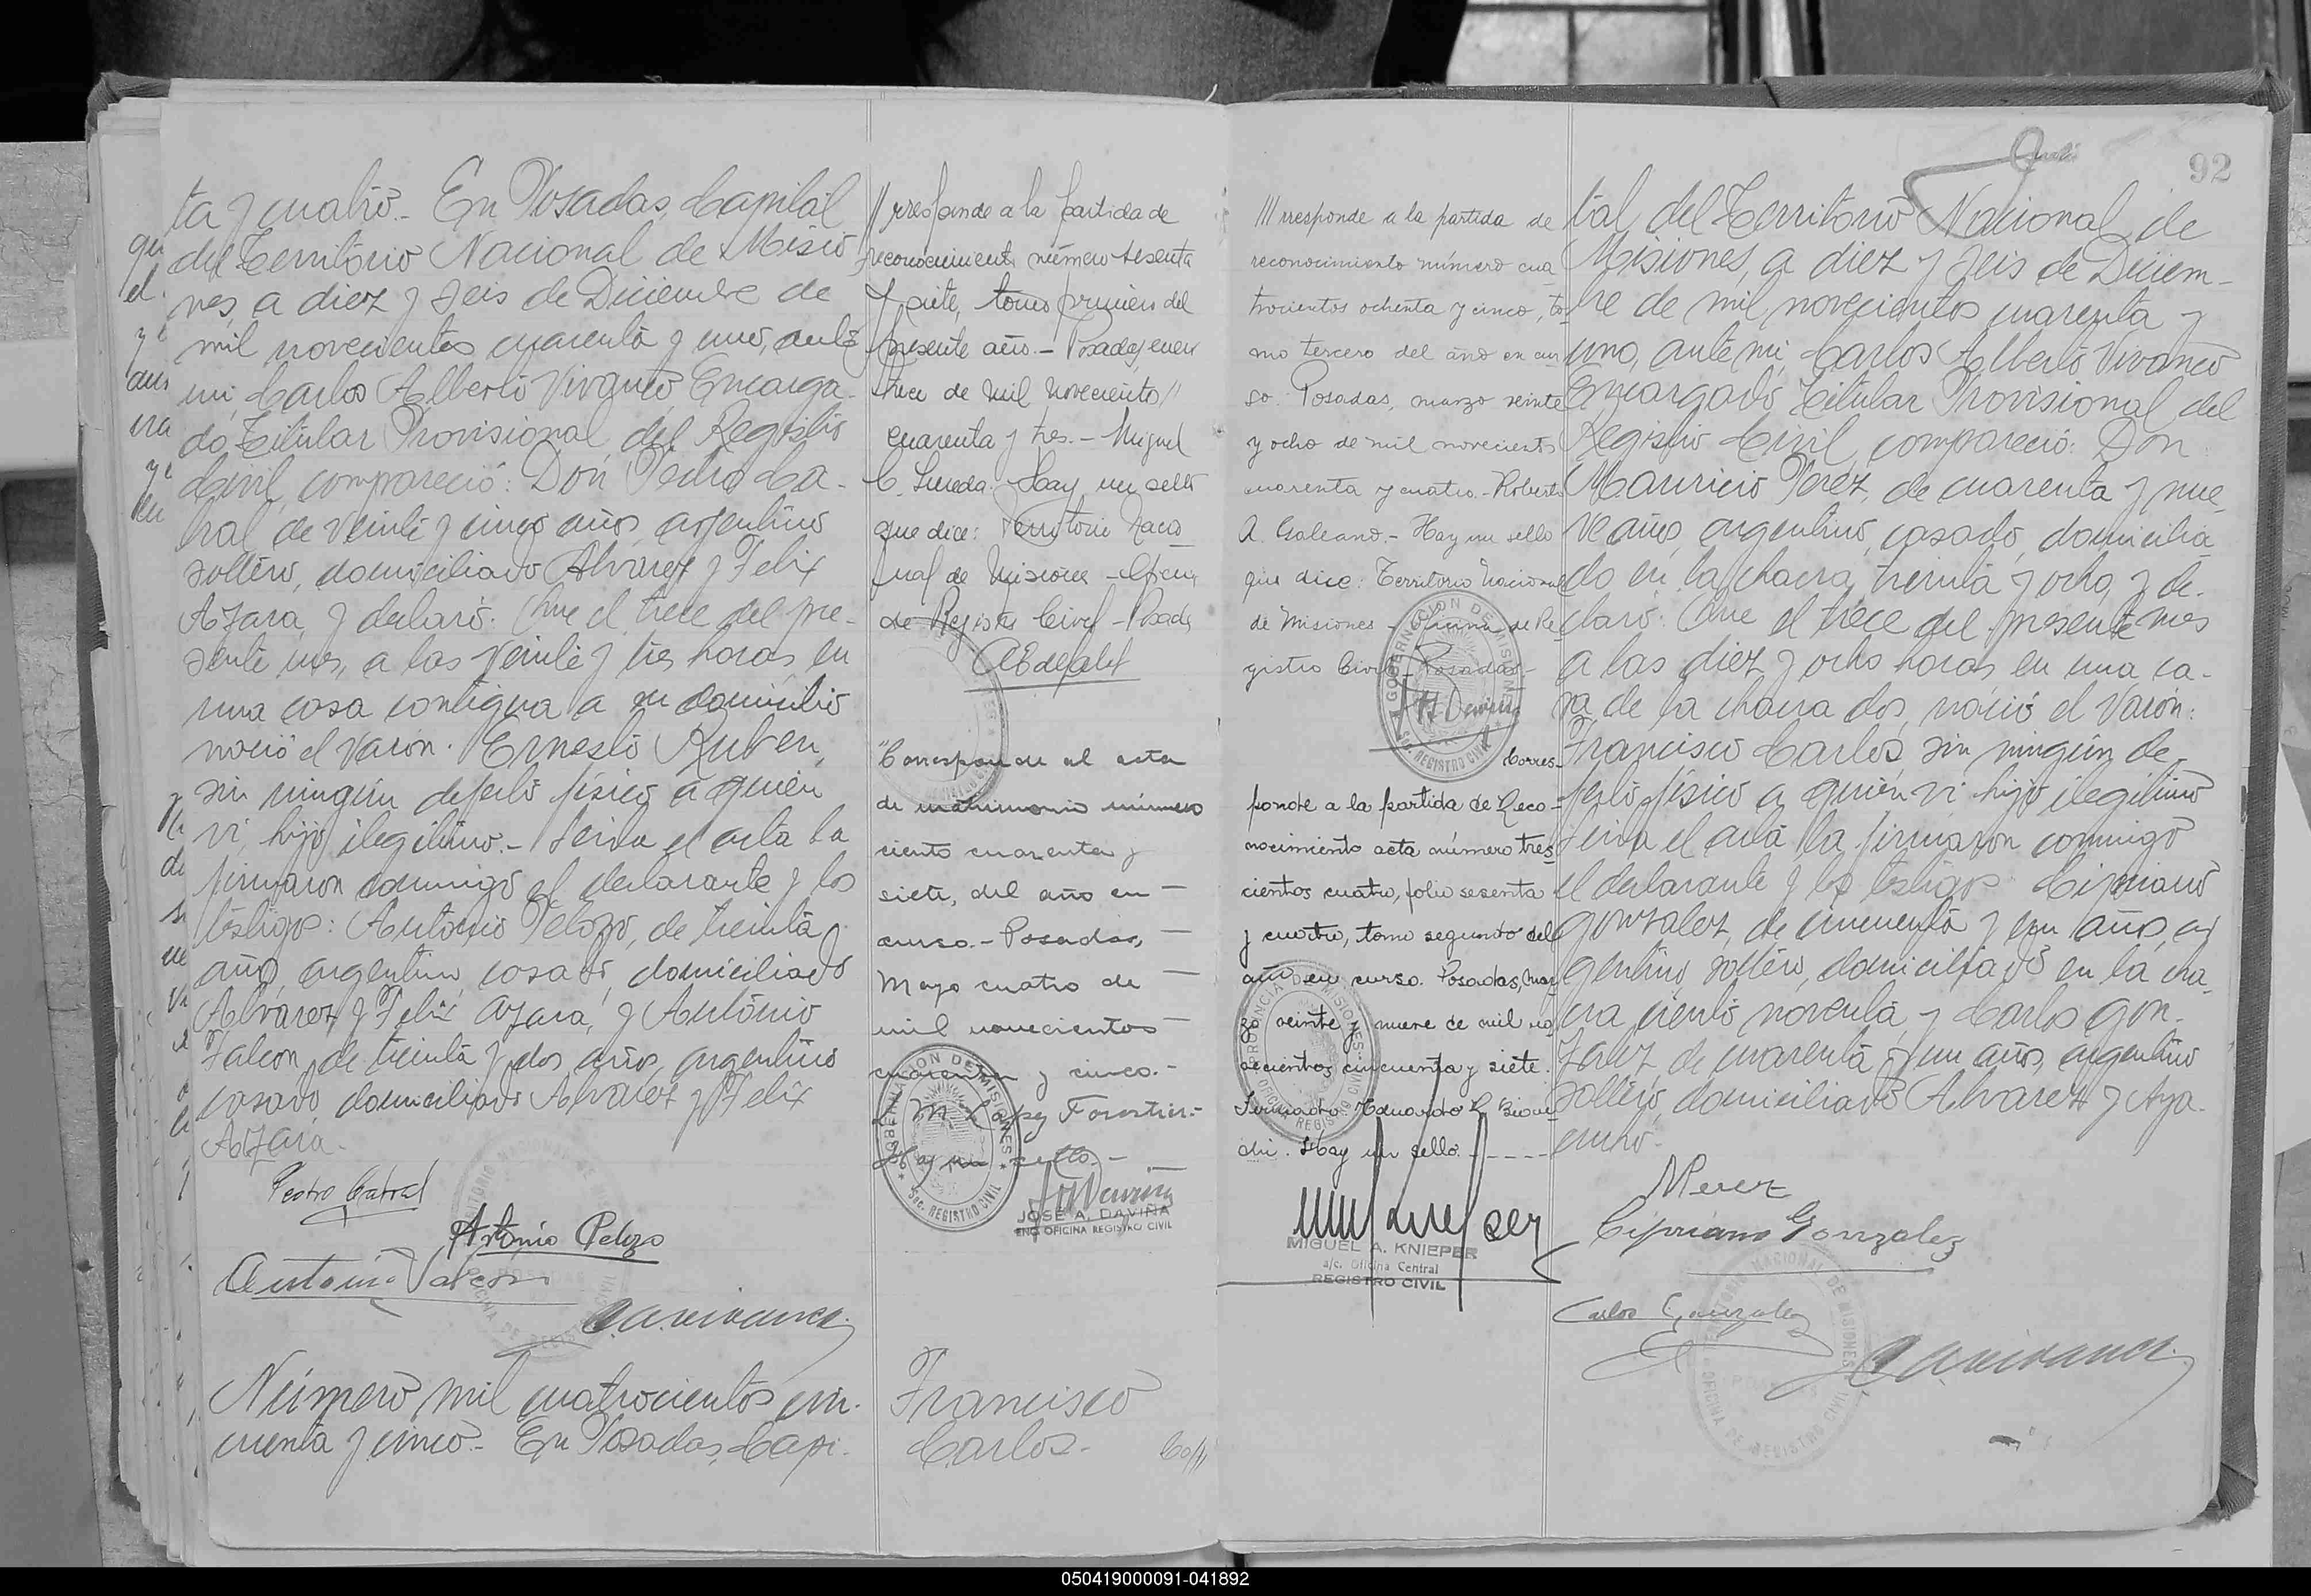 ta y cuatro.- En Posadas, Capital
del Territorio Nacional de Misio
nes, a diez y seis de Diciembre de
mil novecientos cuarenta y uno, ante
mi, Carlos Alberto Vivanco Encarga-
do Titular Provisional del Registro
Civil, compareció: Don Pedro Ca-
bral de veinte y cinco años, argentino
soltero, domiciliado Alvarez y Felix
Azara, y declaró: Que el trece del pre-
sente mes, a las veinte y tres horas, en
una casa contigua a su domicilio
nació el varon: Ernesto Ruben,
sin ningún defecto físico a quien
vi, hijo ilegitimo.- Leida el acta la
firmaron conmigo el declarante y los
testigos: Antonio Pelozo, de treinta
años, argentino, casado, domiciliado
Alvarez y Felix Azara, y Antonio
Falcon, de treinta y dos años, argentino
casado domiciliado Alvarez y Felix
Azara.-
Pedro Cabral
Antonio Pelozo
Antonio Falcon
C.A.Vivanco.
Número mil cuatrocientos cin-
cuenta y cinco.- En Posadas, Capi-
//rresponde a la partida de
reconocimiento número sesenta
y siete, tomo primero del
presente año.- Posadas, enero
trece de mil novecientos//
cuarenta y tres.- Miguel
C. Hay un sello
que dice: Territorio Nacio
nal de Misiones - Oficina
de Registro Civil - Posadas
"Corresponde al acta
de matrimonio número
ciento cuarenta y
siete, del año en -
curso.- Posadas, -
Mayo cuatro de -
mil novecientos -
cuarenta y cinco.-
M. Lopez Forastier.-
Hay un sello.-
GOBERNACION DE MISIONES
Sec. REGISTRO CIVIL
JOSÉ A. DAVIÑA
ENC. OFICINA REGISTRO CIVIL
Francisco
Carlos.-
Co///
///rresponde a la partida de
reconocimiento número cua
trocientos ochenta y cinco, to-
mo tercero del año en cur
so. Posadas, marzo veinte
y ocho de mil novecientos
cuarenta y cuatro.- Roberto
A. Galeano.- Hay un sello
que dice: Territorio Nacional
de Misiones - Oficina de Re
gistro Civil - Posadas-
GOBERNACION DE MISIONES
Sec. REGISTRO CIVIL
Corres-
ponde a la partida de Reco-
nocimiento acta número tres
cientos cuatro, folio sesenta
y cuatro, tomo segundo del
año en curso. Posadas, mar
zo veinte y nueve de mil no
vecientos cincuenta y siete.
Firmado: Eduardo
Hay un sello.-----
MIGUEL A. KNIEPER
a/c. Oficina Central
REGISTRO CIVIL
92
tal del Territorio Nacional de
Misiones, a diez y seis de Diciem-
bre de mil novecientos cuarenta y
uno, ante mi, Carlos Alberto Vivanco
Encargado Titular Provisional del
Registro Civil, compareció: Don
Mauricio Perez, de cuarenta y nue
ve años, argentino, casado, domicilia
do en la chacra treinta y ocho, y de-
claró: Que el trece del presente mes
a las diez y ocho horas en una ca-
sa, de la chacra dos, nació el varon:
Francisco Carlos, sin ningún de-
fecto físico a quien vi, hijo ilegitimo
Leida el acta la firmaron conmigo
el declarante y los testigos: Cipriano
Gonzalez, de cincuenta y un años, ar
gentino, soltero, domiciliado en la cha
cra ciento noventa y Carlos Gon-
zalez de cuarenta y un años, argentino
soltero, domiciliado Alvarez y Aya-
cucho.-
MPerez
Cipriano Gonzalez
Carlos Gonzalez
C.A.Vivanco.
050419000091-041892